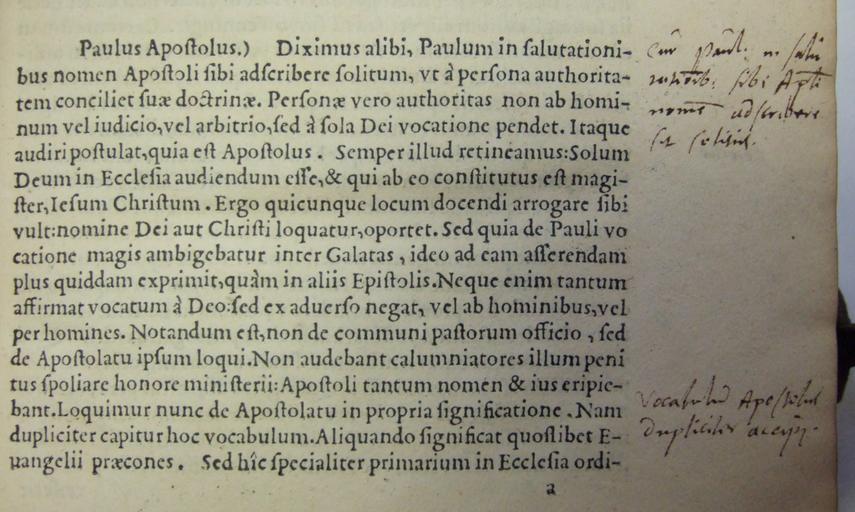 Paulus Apoſtolus.) Diximus alibi, Paulum in ſalutationi-
bus nomen Apoſtoli ſibi adſcribere ſolitum, vt à perſona authorita-
tem conciliet ſuæ doctrinæ. Perſonæ vero authoritas non ab homi-
num vel iudicio,vel arbitrio,ſed à ſola Dei vocatione pendet. Itaque
audiri poſtulat,quia eſt Apoſtolus . Semper illud retineamus:Solum
Deum in Eccleſia audiendum eſſe,& qui ab eo conſtitutus eſt magi-
ſter,Ieſum Chriſtum . Ergo quicunque locum docendi arrogare ſibi
vult:nomine Dei aut Chriſti loquatur,oportet. Sed quia de Pauli vo
catione magis ambigebatur inter Galatas , ideo ad eam aſſerendam
plus quiddam exprimit,quàm in aliis Epiſtolis.Neque enim tantum
affirmat vocatum à Deo:ſed ex aduerſo negat, vel ab hominibus,vel
per homines. Notandum eſt,non de communi paſtorum officio , ſed
de Apoſtolatu ipſum loqui.Non audebant calumniatores illum peni
tus ſpoliare honore miniſterii:Apoſtoli tantum nomen & ius eripie-
bant.Loquimur nunc de Apoſtolatu in propria ſignificatione . Nam
dupliciter capitur hoc vocabulum.Aliquando ſignificat quoſlibet E-
uangelii præcones . Sed hîc ſpecialiter primarium in Eccleſia ordi-
a
ſibi
adſcribere
Dupliciter